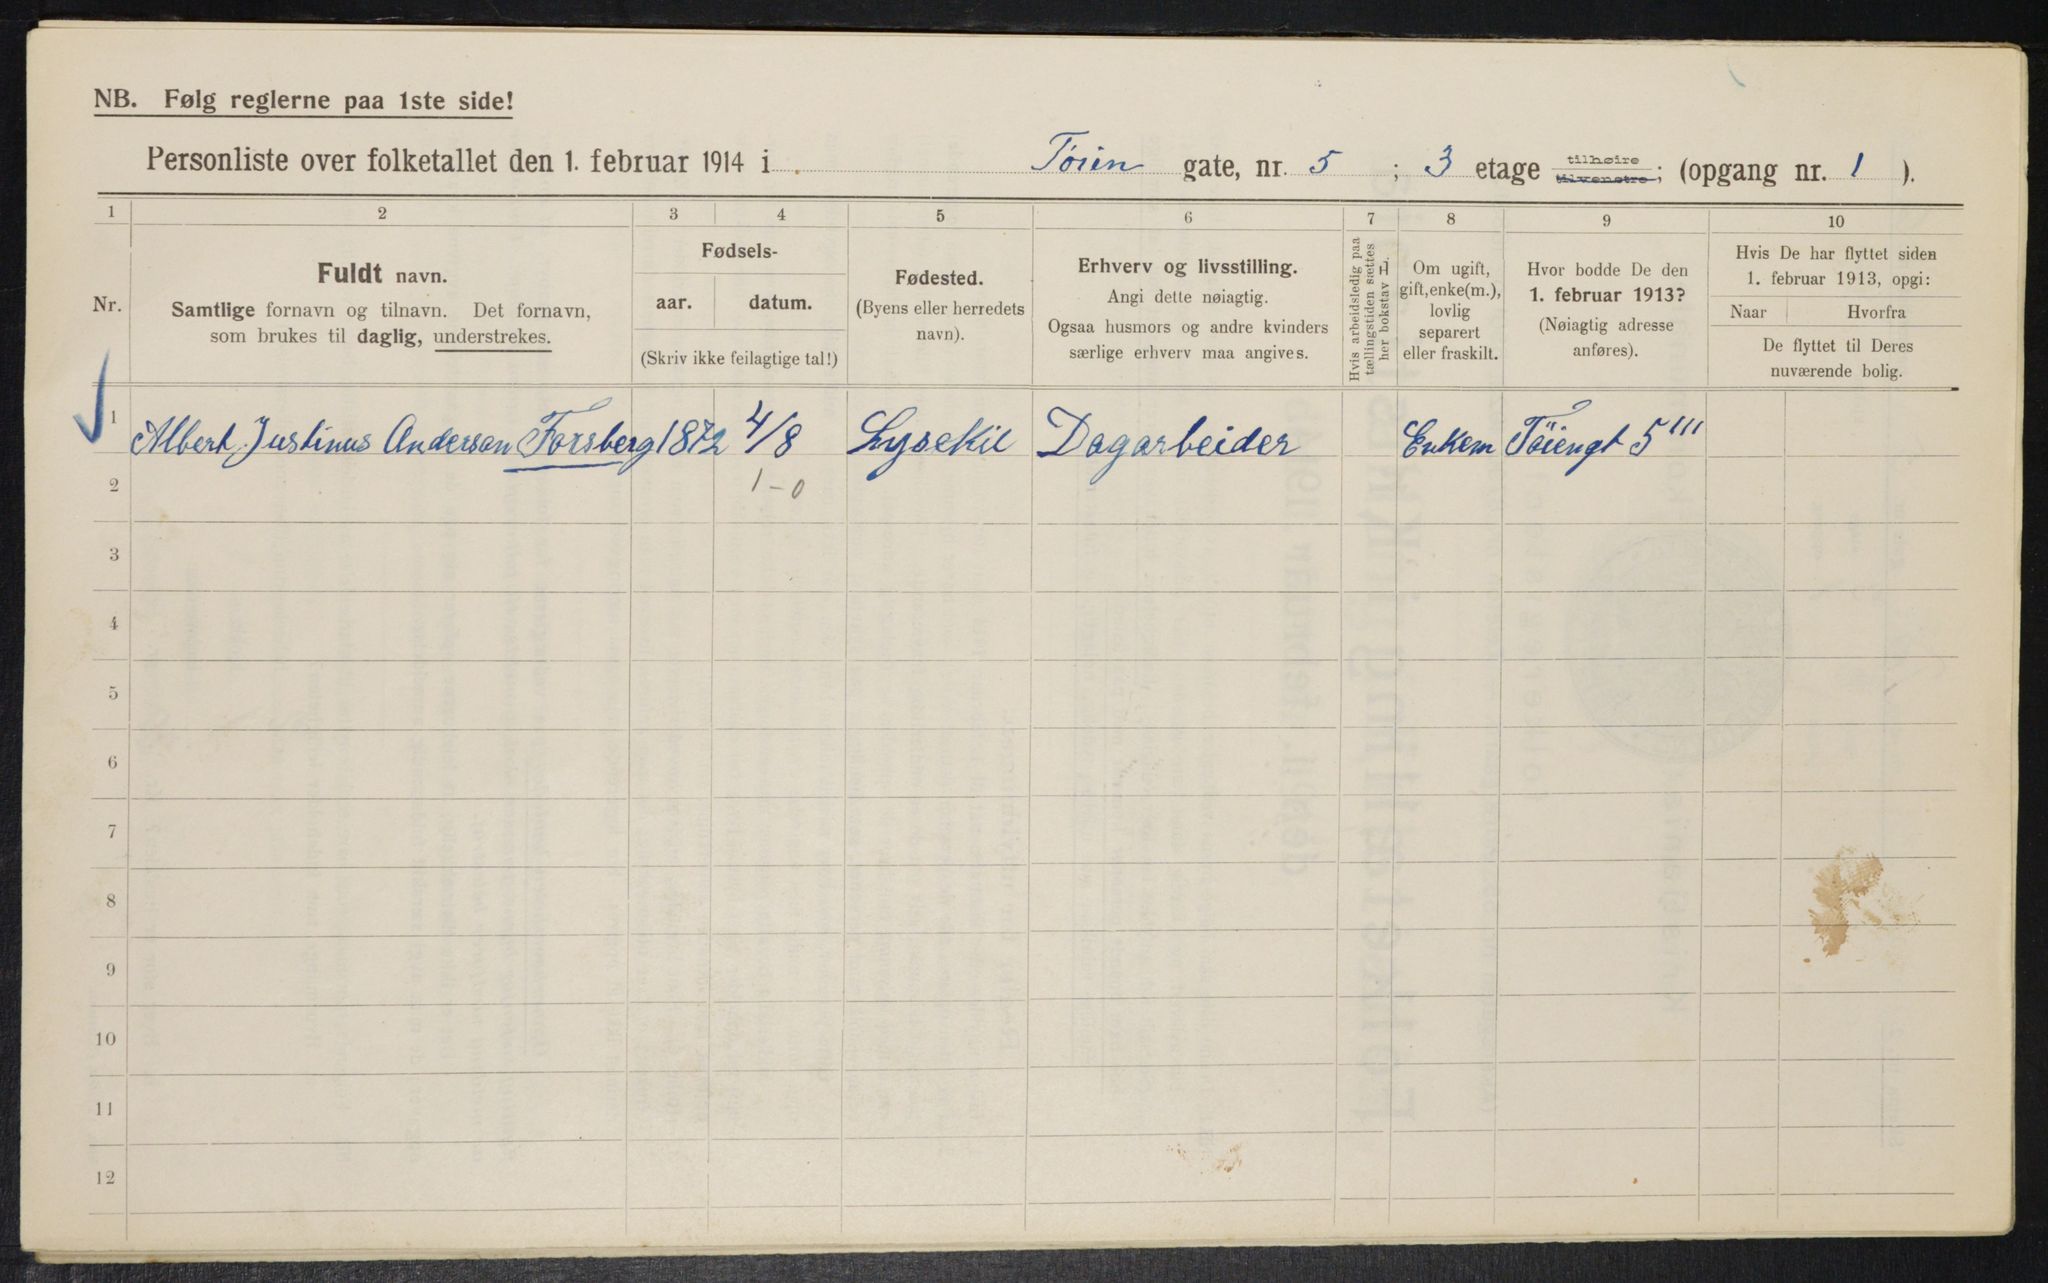 NB. Følg reglerne paa 1ste side!
Personliste over folketallet den 1. februar 1914 i Tøien gate, nr. 5 ; 3 etage tilhøire tilvenstre; (opgang nr. 1 ).
1 2 3 4 5 6 7 8 9 10
Nr.
Fuldt navn.
Samtlige fornavn og tilnavn. Det fornavn,
som brukes til daglig, understrekes.
Fødsels-
aar. datum.
(Skriv ikke feilagtige tal!)
Fødested.
(Byens eller herredets
navn).
Erhverv og livsstilling.
Angi dette nøiagtig.
Ogsaa husmors og andre kvinders
særlige erhverv maa angives.
Hvis arbeidsledig paa
tællingstiden sættes
her bokstav H.
Om ugift,
gift, enke(m.),
lovlig
separert
eller fraskilt.
Hvor bodde De den
1. februar 1913?
(Nøiagtig adresse
anføres).
Hvis De har flyttet siden
1. februar 1913, opgi:
Naar Hvorfra
De flyttet til Deres
nuværende bolig.
1 Albert Justinus Anderson Forsberg 1872 4/8 Lysekil Dagarbeider Enkem Töiengt 5'''
2 1-0
3
4
5
6
7
8
9
10
11
12